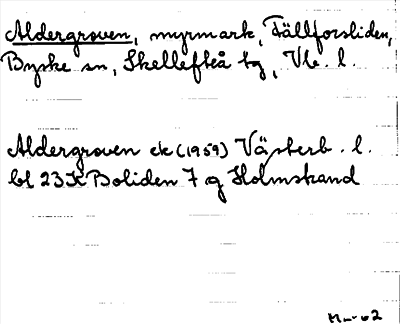 Aldergroven, myrmark, Fällforsliden,
Byske sn, Skellefteå tg, Vb. l.
Aldergroven ek (1959) Västerb. l.
bl 23K Boliden 7 g Holmstrand